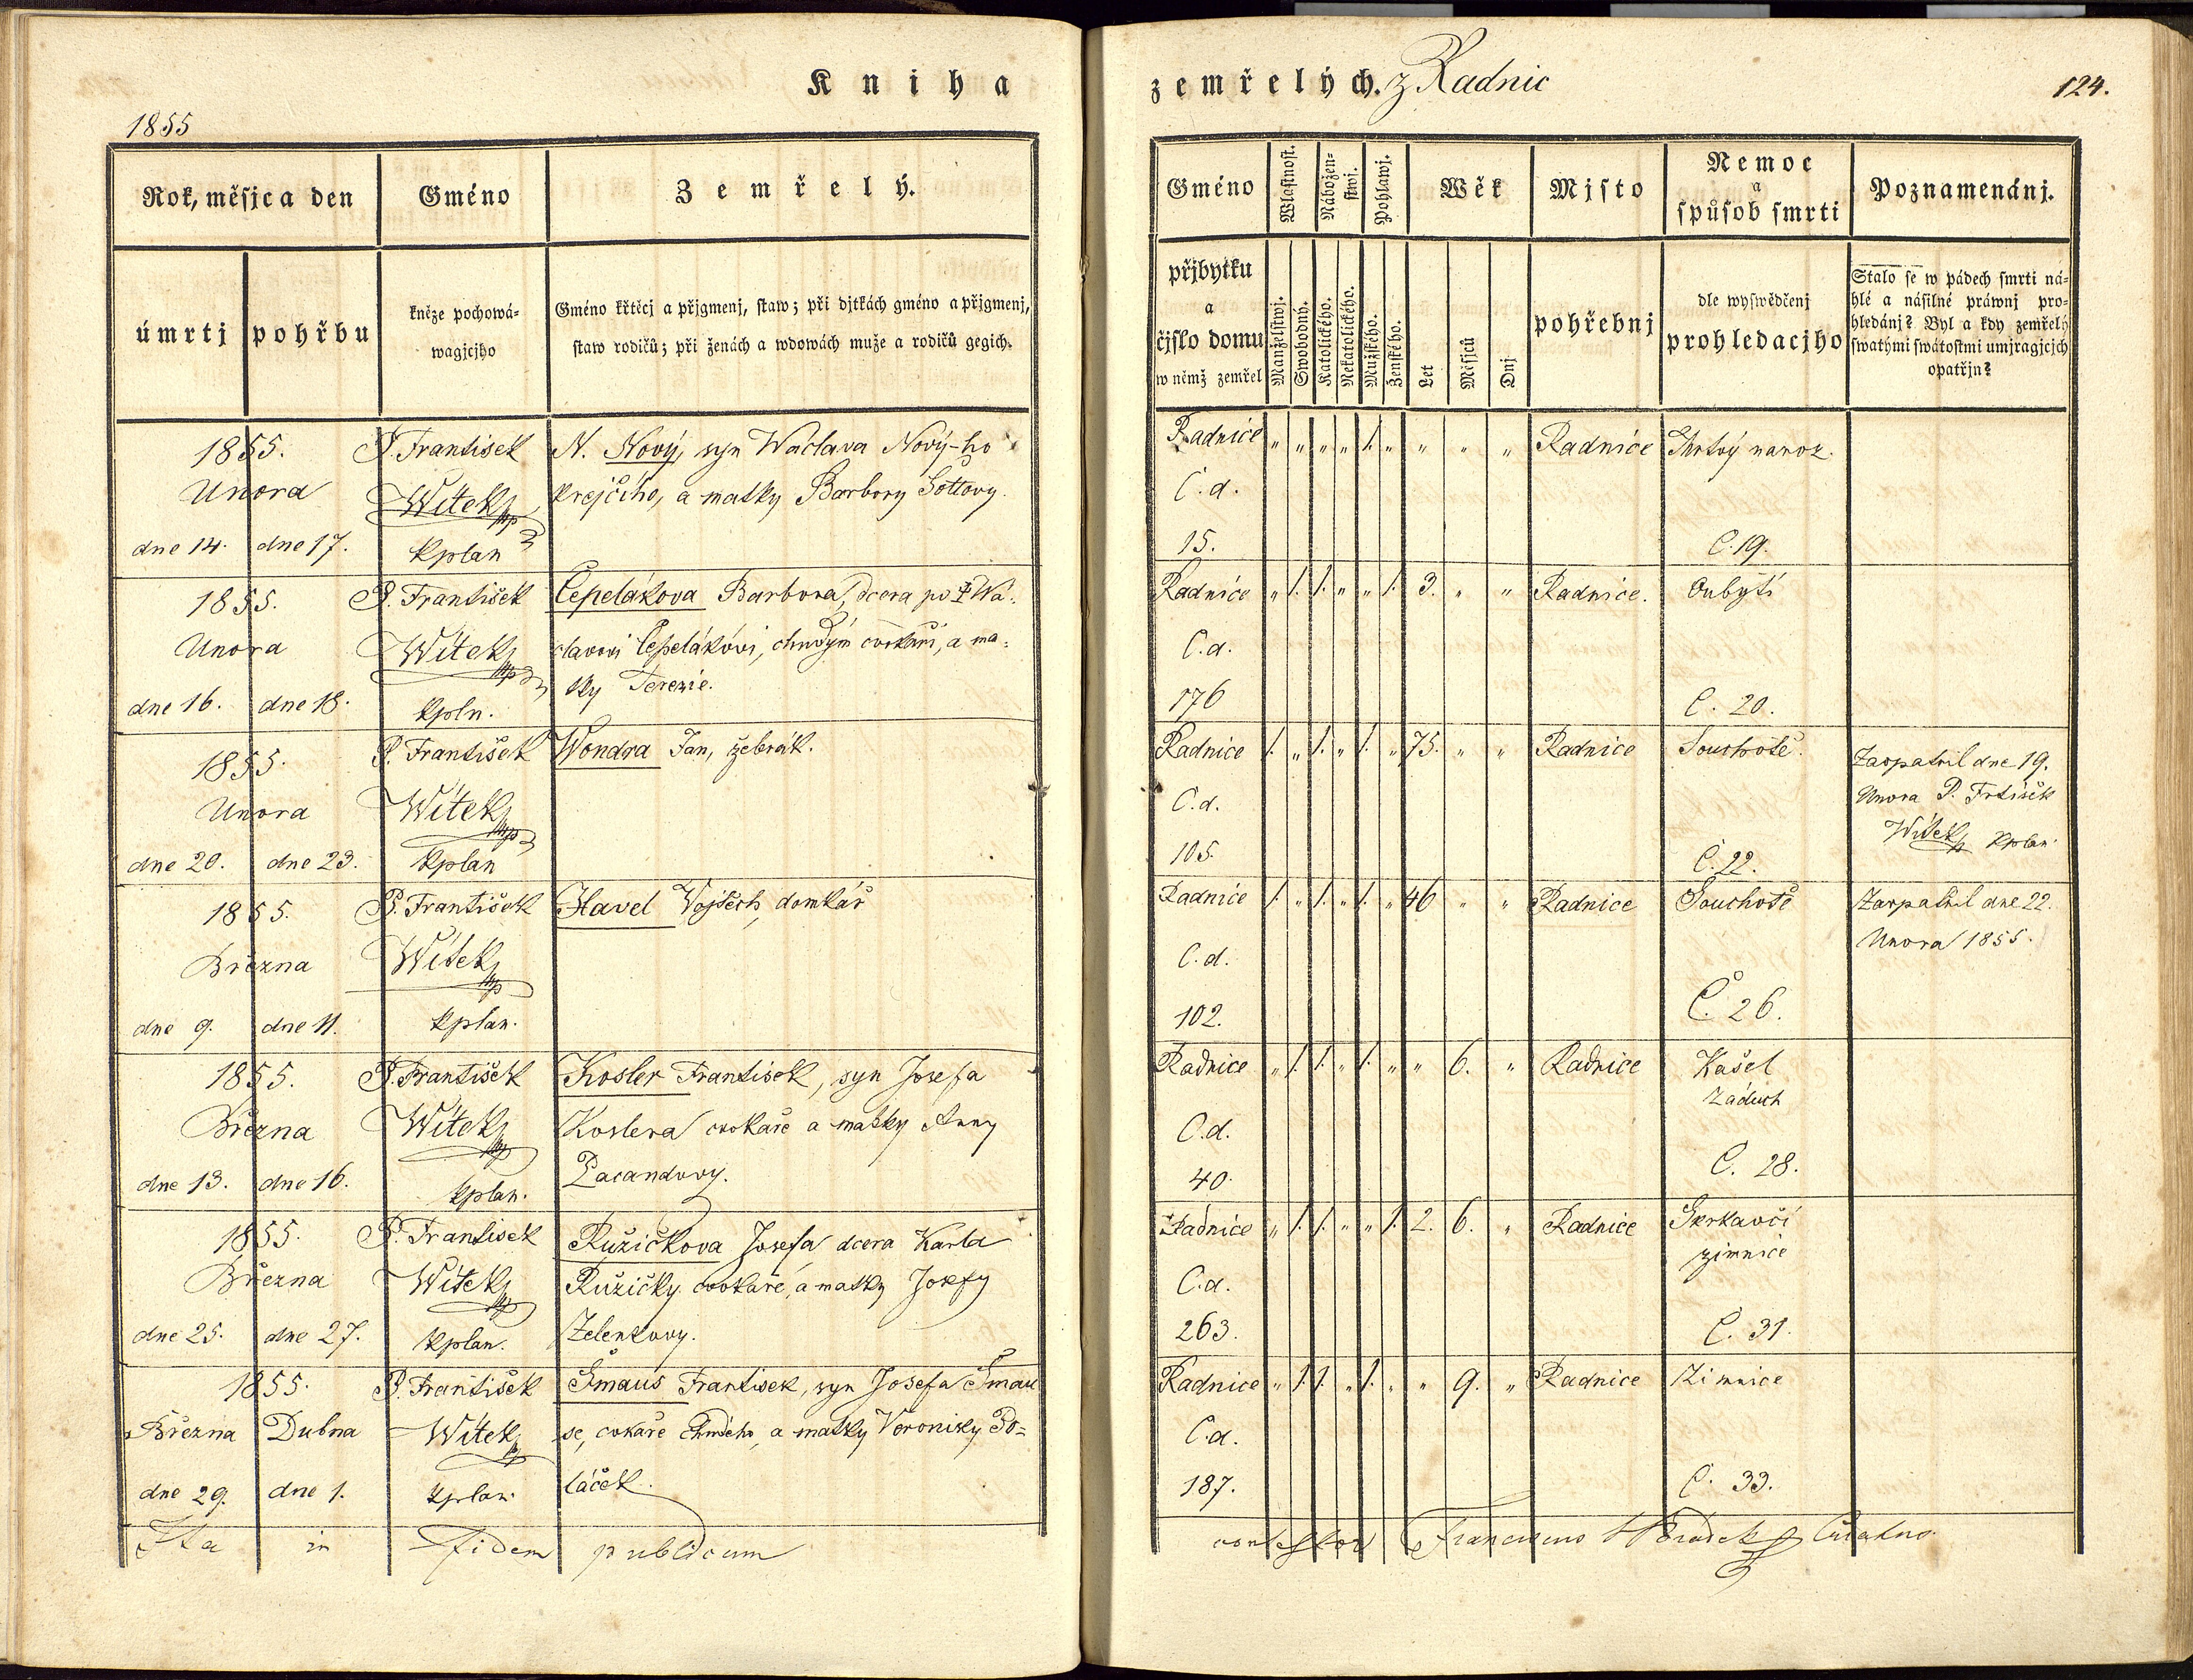 Kniha
1855
Rok, měsjc a den
Gméno
Zemřelý.
úmrtj
pohřbu
kněze pochowá-
wagjcjho
Gméno křtěcj a přjgmenj, staw; při djtkách gméno a přjgmenj,
staw rodičů; při ženách a wdowách muže a rodičů gegich.
1855. P. František N. Nový, syn Wáclava Nový-ho
Unora Witek krejčího, a matky Barbory
dne 14. dne 17. kplan
1855. P. František Čepelákova Barbora, dcera po † Wá-
Unora Witek clavovi Čepelákóvi, cvokaři, a ma-
tky Terezie.
dne 16. dne 18. kpln.
1855. P. František Wondra Jan, žebrák.
Unora Witek
dne 20. dne 23. kplan
1855. P. František Havel Vojtěch, domkář
Března Witek
dne 9. dne 11. kplan.
1855. P. František Kosler František, syn Josefa
Března Witek Koslera cvokaře a matky Anny
Pacandovy.
dne 13. dne 16. kplan.
1855. P. František Růžičkova Josefa dcera Karla
Března Witek Růžičky cvokaře, a matky Josefy
dne 25. dne 27. kplan. Zelenkovy.
1855. P. František Šmaus František, syn Josefa Šmau
Března Dubna Witek se, cvkaře a matky Veroniky Po-
dne 29. dne 1. kplan. láček.
Ita in fidem publicam
zemřelých. z Radnic
124.
Gméno
Wlastnost.
Nábožen-
stwj.
Pohlawj.
Wěk
Mjsto
Nemoc
a
spůsob smrti
Poznamenánj.
přjbytku
a
čjslo domu
w němž zemřel
Manželstwj.
Swobodný.
Katolického.
Nekatolického.
Mužského.
Ženského.
Let
Měsjců
Dnj
pohřebnj
dle wyswědčenj
prohledacjho
Stalo se w pádech smrti ná-
hlé a násilné práwnj pro-
hledánj? Byl a kdy zemřelý
swatými swátostmi umjragjcjch
opatřjn?
Radnice „ „ „ „ 1. „ „ „ „ Radnice Mrtvý naroz.
C.d.
15. C. 19.
Radnice „ 1. 1. „ „ 1. 3. „ „ Radnice. Oubytí
C.d.
176 C. 20.
Radnice 1. „ 1. „ 1. „ 75. „ „ Radnice Souchotě. Zaopatřil dne 19.
C.d. Unora P. Frtišek
Witek kplan
105. C. 22.
Radnice 1. „ 1. „ 1. „ 46 „ „ Radnice Souchotě Zaopatřil dne 22.
C.d. Unora 1855.
102. C. 26.
Radnice „ 1. 1. „ 1. „ „ 6. „ Radnice Kašel
záduch
C.d.
40. C. 28.
Radnice „ 1. 1. „ „ 1. 2. 6. „ Radnice Skrkavčí
zimnice
C.d.
263. C. 31.
Radnice „ 1. 1. „ 1. „ „ 9. „ Radnice Zimnice
C.d.
187. C. 33.
Franciscus